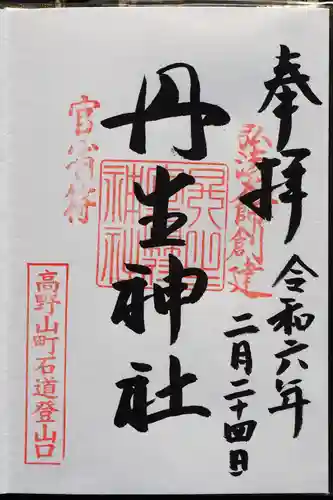 奉拝
弘法大師創建
令和六年
二月二十四日
丹生神社
官省符
高野山町石道登山口